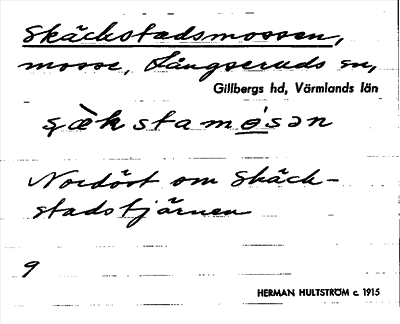 Skäckstadsmossen,
mosse, Långseruds sn,
Gillbergs hd, Värmlands län
ʂæ̀kstamǿsən
Nordöst om Skäck-
stadstjärnen
9
HERMAN HULTSTRÖM c. 1915